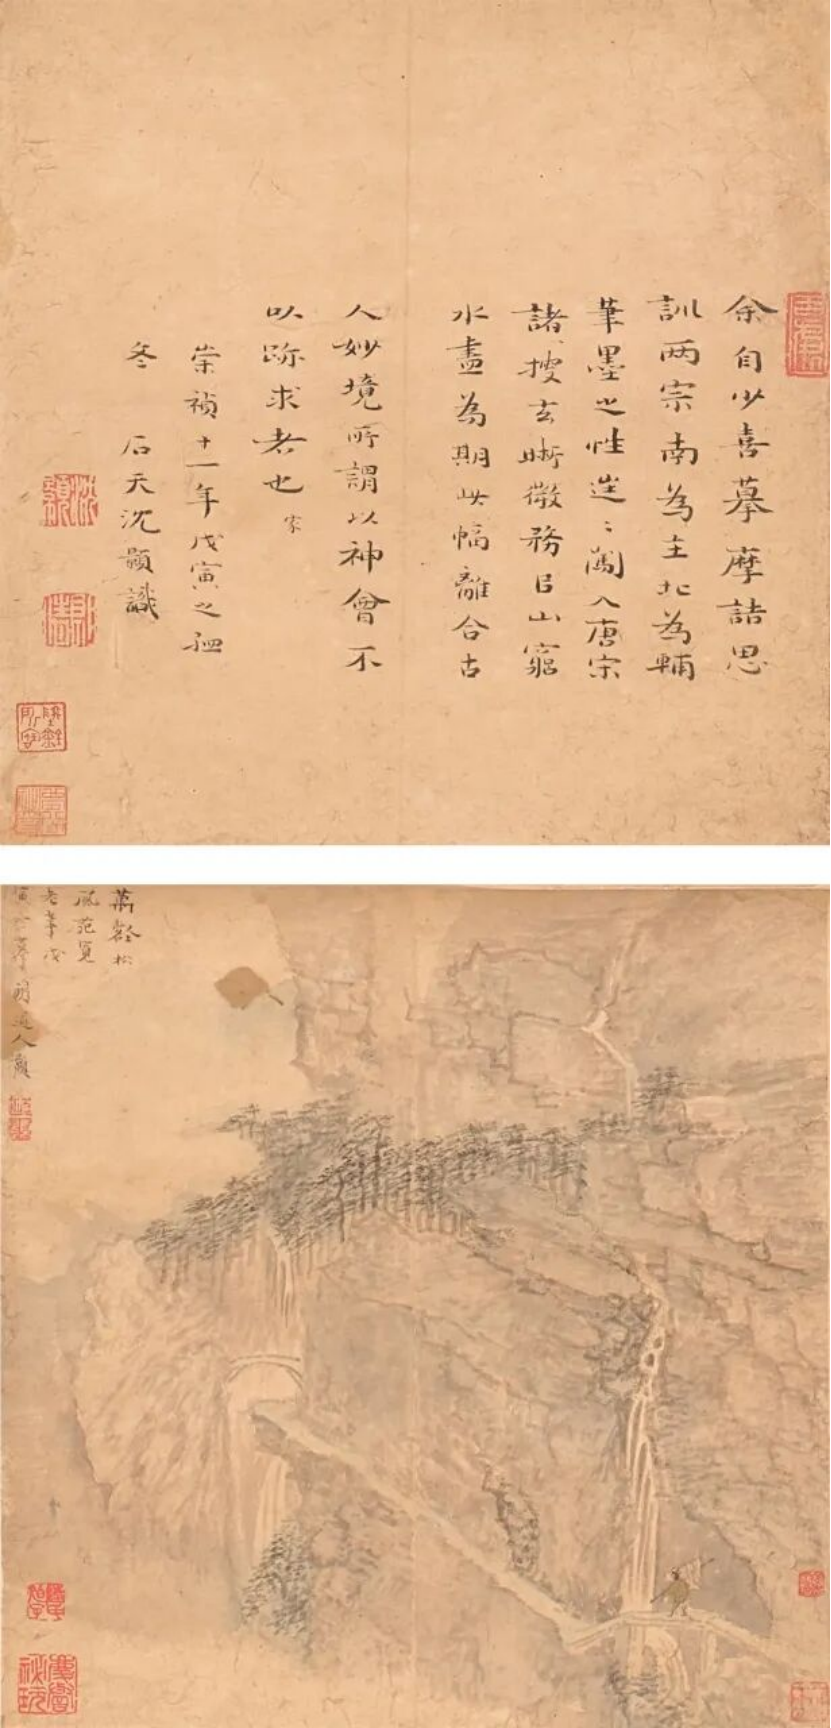 余自少喜摹摩詰思
訓两宗南為主北為輔
筆墨之性逹〻闖入唐宋
諸㨶玄晰微務㠯山窮
水盡為期此幅離合古
人妙境所謂以神會不
以跡求者也家
崇禎十一年戊寅之
冬 石天沈顥識
萬壑松
風范寬
老筆戊
寅冬摹
道人顥